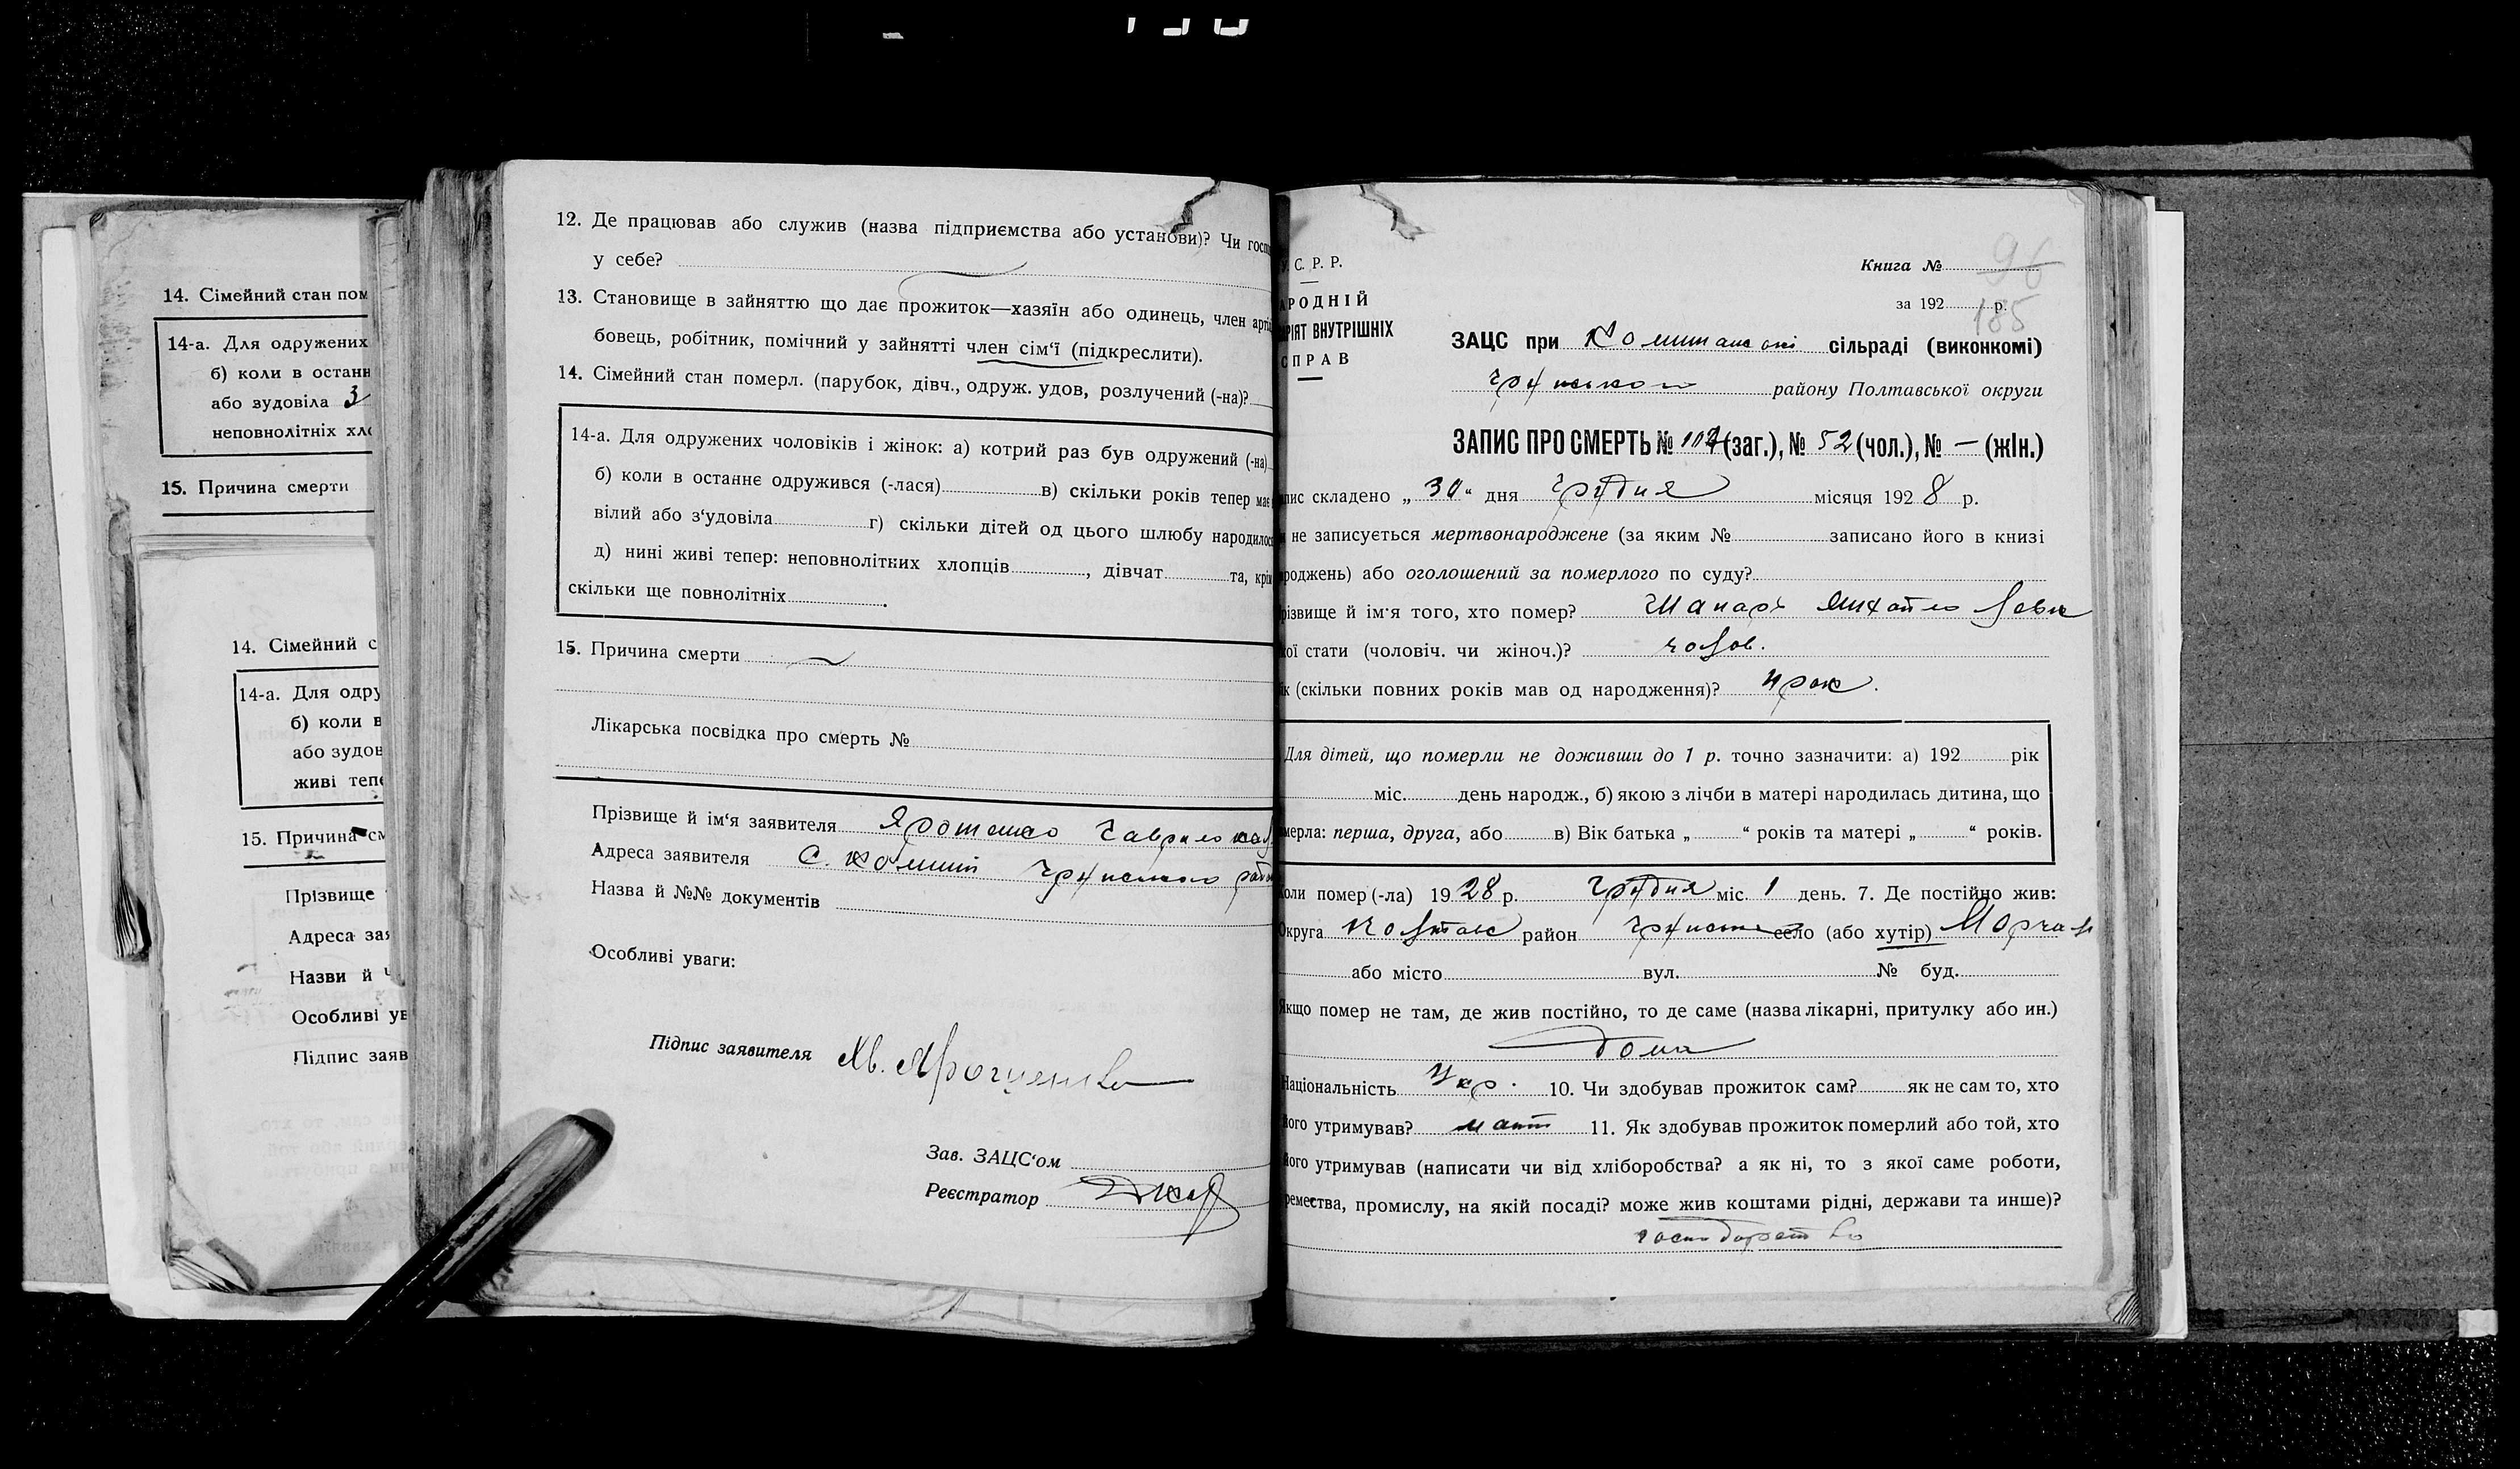 14. Сімейний стан пом
14-а. Для одружених
б) коли в останн
або зудовіла 3
неповнолітніх хло
15. Причина смерти
14. Сімейний с
14-а. Для одру
б) коли в
або зудов
живі тепе
15. Причина см
Прізвище
Адреса зая
Назви й
Особливі ув
Підпис заяв
12. Де працював або служив (назва підприємства або установи)? Чи госпо
у себе?
13. Становище в зайняттю що дає прожиток—хазяїн або одинець, член арті
бовець, робітник, помічний у зайнятті член сім'ї (підкреслити).
14. Сімейний стан померл. (парубок, дівч., одруж. удов, розлучений (-на)?
14-а. Для одружених чоловіків і жінок: а) котрий раз був одружений (-на)
б) коли в останнє одружився (-лася) в) скільки років тепер має
вілий або з'удовіла г) скільки дітей од цього шлюбу народилося
д) нині живі тепер: неповнолітних хлопців , дівчат та, крім
скільки ще повнолітніх .
15. Причина смерти —
Лікарська посвідка про смерть №
Прізвище й ім'я заявителя Гаврило
Адреса заявителя С. Комиш
Назва й №№ документів
Особливі уваги:
Підпис заявителя
Зав. ЗАЦС'ом
Реєстратор
У. С. Р. Р.
АРОДНІЙ
АРІЯТ ВНУТРІШНІХ
СПРАВ
Книга № 96
за 192 р.
185
ЗАЦС при сільраді (виконкомі)
району Полтавської округи
ЗАПИС ПРО СМЕРТЬ № 107 (заг.), № 52 (чол.), № — (жін.)
пис складено „ 30 “ дня Грудня місяця 192 8 р.
и не записується мертвонароджене (за яким № записано його в книзі
роджень) або оголошений за померлого по суду?
різвище й ім'я того, хто помер? Шапарь Михайло
кої стати (чоловіч. чи жіноч.)? чолов.
ік (скільки повних років мав од народження)? рок.
Для дітей, що померли не доживши до 1 р. точно зазначити: а) 192 рік
міс. день народж., б) якою з лічби в матері народилась дитина, що
мерла: перша, друга, або в) Вік батька „ “ років та матері „ “ років.
Коли помер (-ла) 19 28 р. Грудня міс. 1 день. 7. Де постійно жив:
Округа Полтав район село (або хутір)
або місто вул. № буд.
Якщо помер не там, де жив постійно, то де саме (назва лікарні, притулку або ин.)
Дома
Національність Укр. 10. Чи здобував прожиток сам? як не сам то, хто
його утримував? мати 11. Як здобував прожиток померлий або той, хто
його утримував (написати чи від хліборобства? а як ні, то з якої саме роботи,
ремества, промислу, на якій посаді? може жив коштами рідні, держави та инше)?
господарство